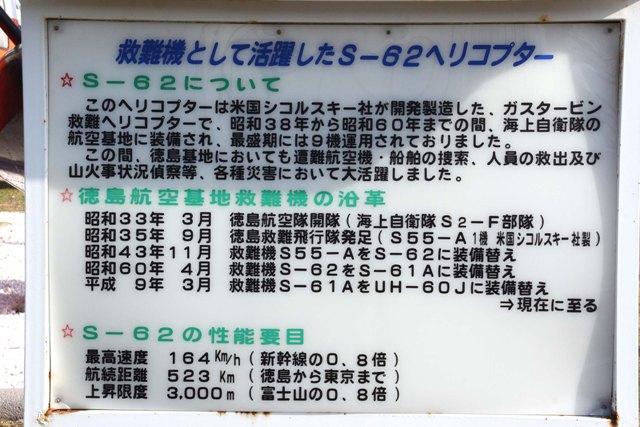 救難機として活躍したS－62ヘリコプター
☆S－62について
このヘリコプターは米国シコルスキー社が開発製造した、ガスタービン
救難ヘリコプターで、昭和38年から昭和60年までの間、海上自衛隊の
航空基地に装備され、最盛期には9機運用されておりました。
この間、徳島基地においても遭難航空機・船舶の捜索、人員の救出及び
山火事状況偵察等、各種災害において大活躍しました。
☆徳島航空基地救難機の沿革
昭和33年 3月 徳島航空隊開隊（海上自衛隊S2－F部隊）
昭和35年 9月 徳島救難飛行隊発足（S55－A1機 米国シコルスキー社製）
昭和43年11月 救難機S55－AをS－62に装備替え
昭和60年 4月 救難機S－62をS－61Aに装備替え
平成 9年 3月 救難機S－61AをUH－60Jに装備替え
⇒現在に至る
☆S－62の性能要目
最高速度 164Km/h（新幹線の0．8倍）
航続距離 523Km（徳島から東京まで）
上昇限度 3,000m（富士山の0．8倍）